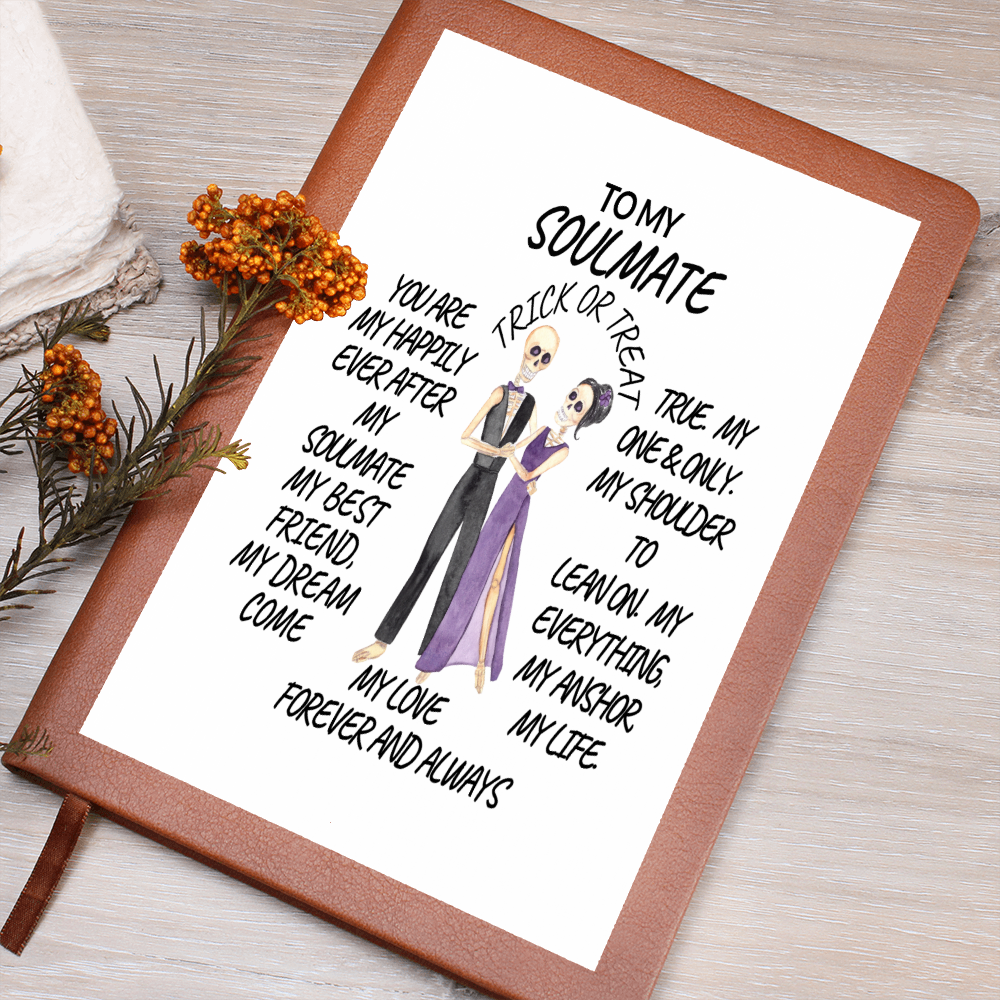 TO MY
SOULMATE
TRICK OR TREAT
YOU ARE
MY HAPPILY
EVER AFTER
MY
SOULMATE
MY BEST
FRIEND,
MY DREAM
COME
TRUE. MY
ONE & ONLY.
MY SHOULDER
TO
LEAN ON. MY
EVERYTHING,
MY ANSHOR
MY LIFE.
MY LOVE
FOREVER AND ALWAYS